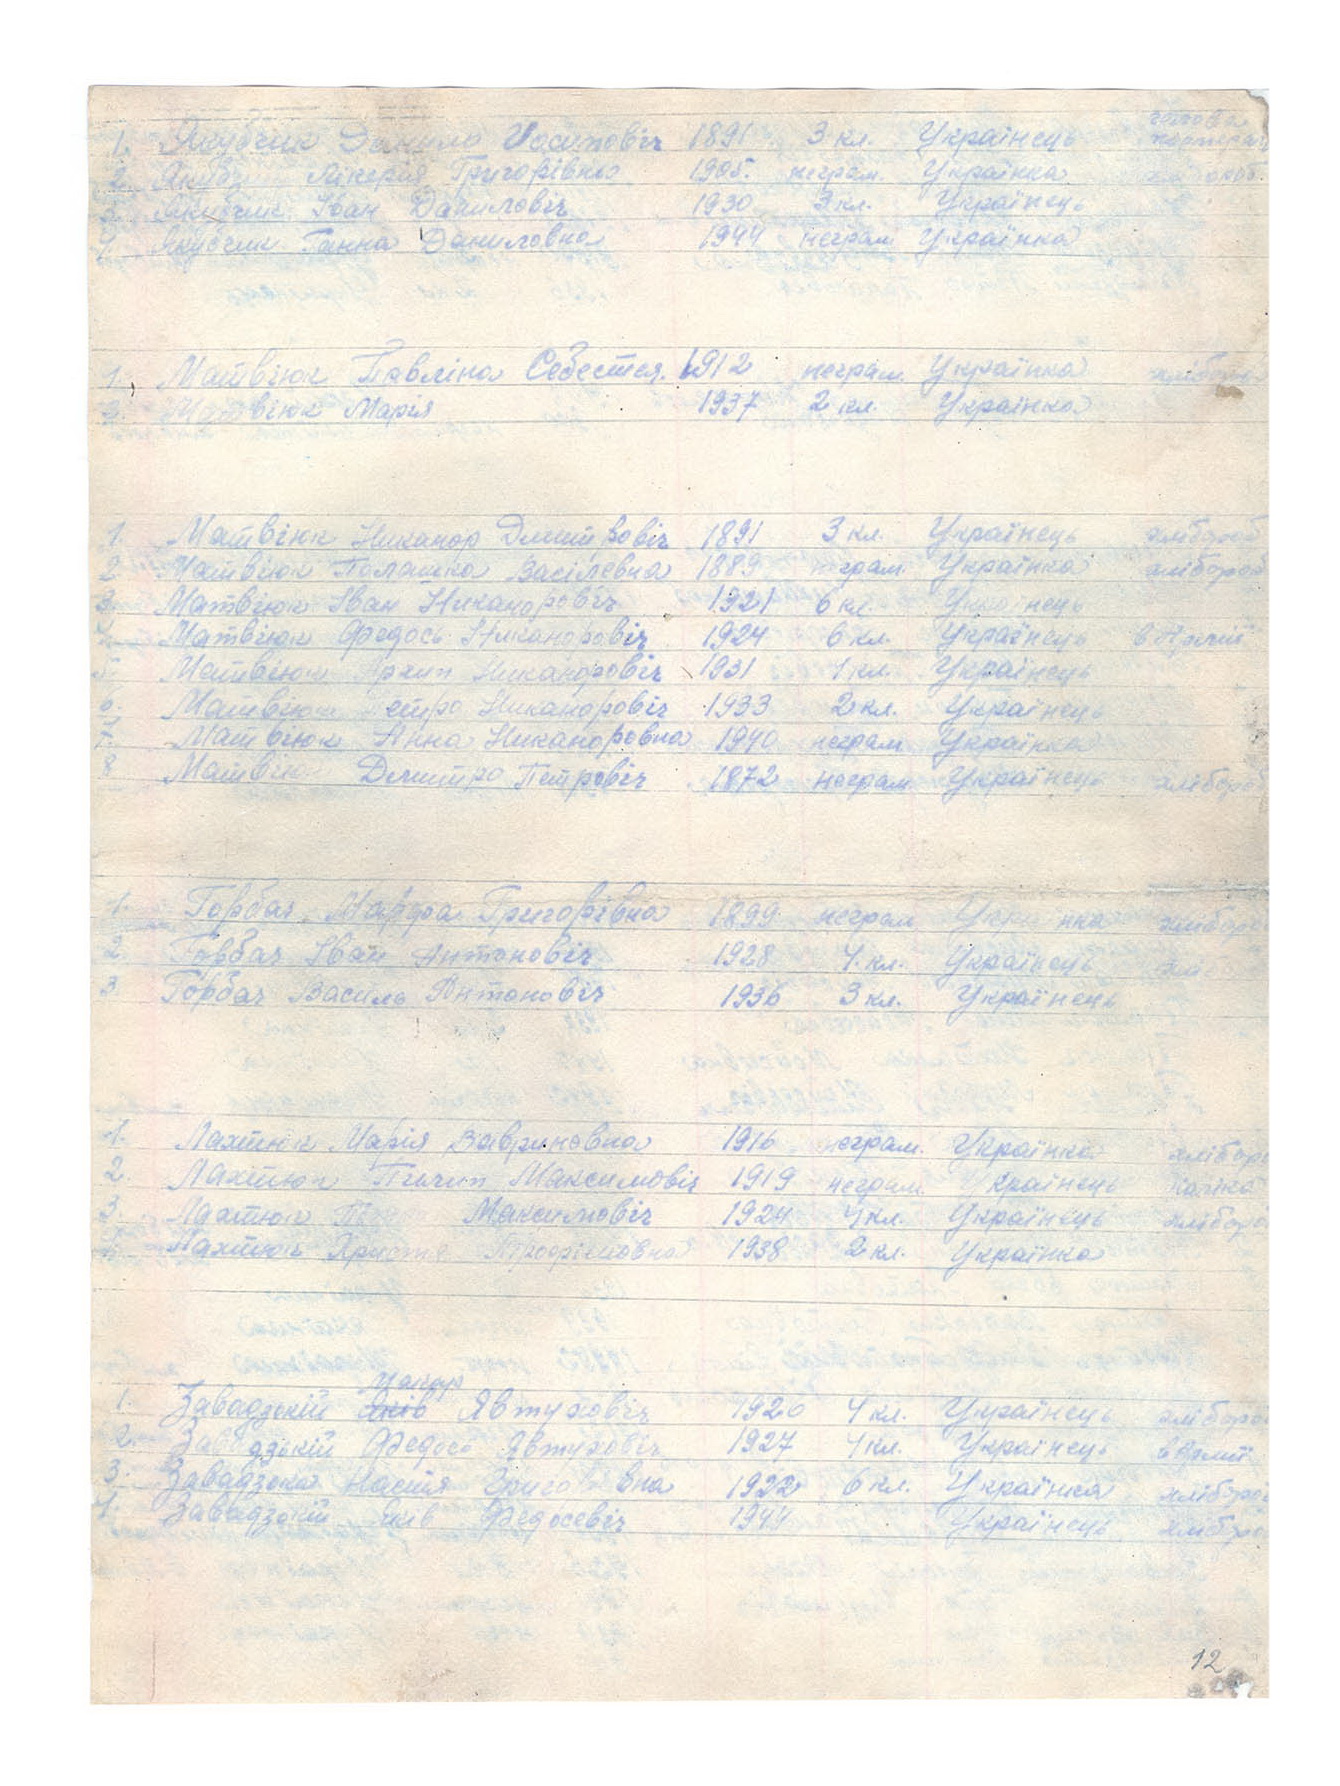 1. Якубчик Данило Йосипович 1891 3 кл. Українець голова
2. Лікерія Григорівна 1905. неграм. Українка
3. Якубчик Іван Даниловіч 1930 3 кл. Українець
4. Якубчик Ганна Даниловна 1944 неграм Українка
1. Матвіюк Павліна Себестея. 1912 неграм. Українка хлібороб
2. Матвіюк Марія 1937 2 кл. Українка
1. Матвіюк Никанор Дмитровіч 1891 3 кл. Українець хлібороб
2. Матвіюк Палашка Васілевна 1889 неграм. Українка хлібороб
3. Матвіюк Іван Никаноровіч 1921 6 кл. Українець
4. Матвіюк Федось Никаноровіч 1924 6 кл. Українець в Армії
5. Матвіюк Архип Никаноровіч 1931 4 кл. Українець
6. Матвіюк Петро Никаноровіч 1933 2 кл. Українець
7. Матвіюк Анна Никаноровна 1940 неграм Українка
8 Матвіюк Дмитро Петровіч 1872 неграм. Українець хлібороб
1. Горбач Марфа Григорівна 1899 неграм Українка хлібороб
2. Горбач Іван Антоновіч 1928 4 кл. Українець
3 Горбач Василь Антоновіч 1936 3 кл. Українець
1. Лахтюк Марія 1916 неграм. Українка хлібороб
2. Лахтюк Пилип Максимовіч 1919 неграм. Українець
3. Лахтюк Максимовіч 1924 4 кл. Українець хлібороб
4. Лахтюк Христя Трофімовна 1938 2 кл. Українка
1. Завадзский Явтуховіч 1920 4 кл. Українець хлібороб
2. Завадзький Федось Явтуховіч 1927 4 кл. Українець в Армії
3. Завадзска Настя Григоровна 1922 6 кл. Українка хлібороб
4. Завадзский Яків Федосевіч 1944 Українець хлібороб
12